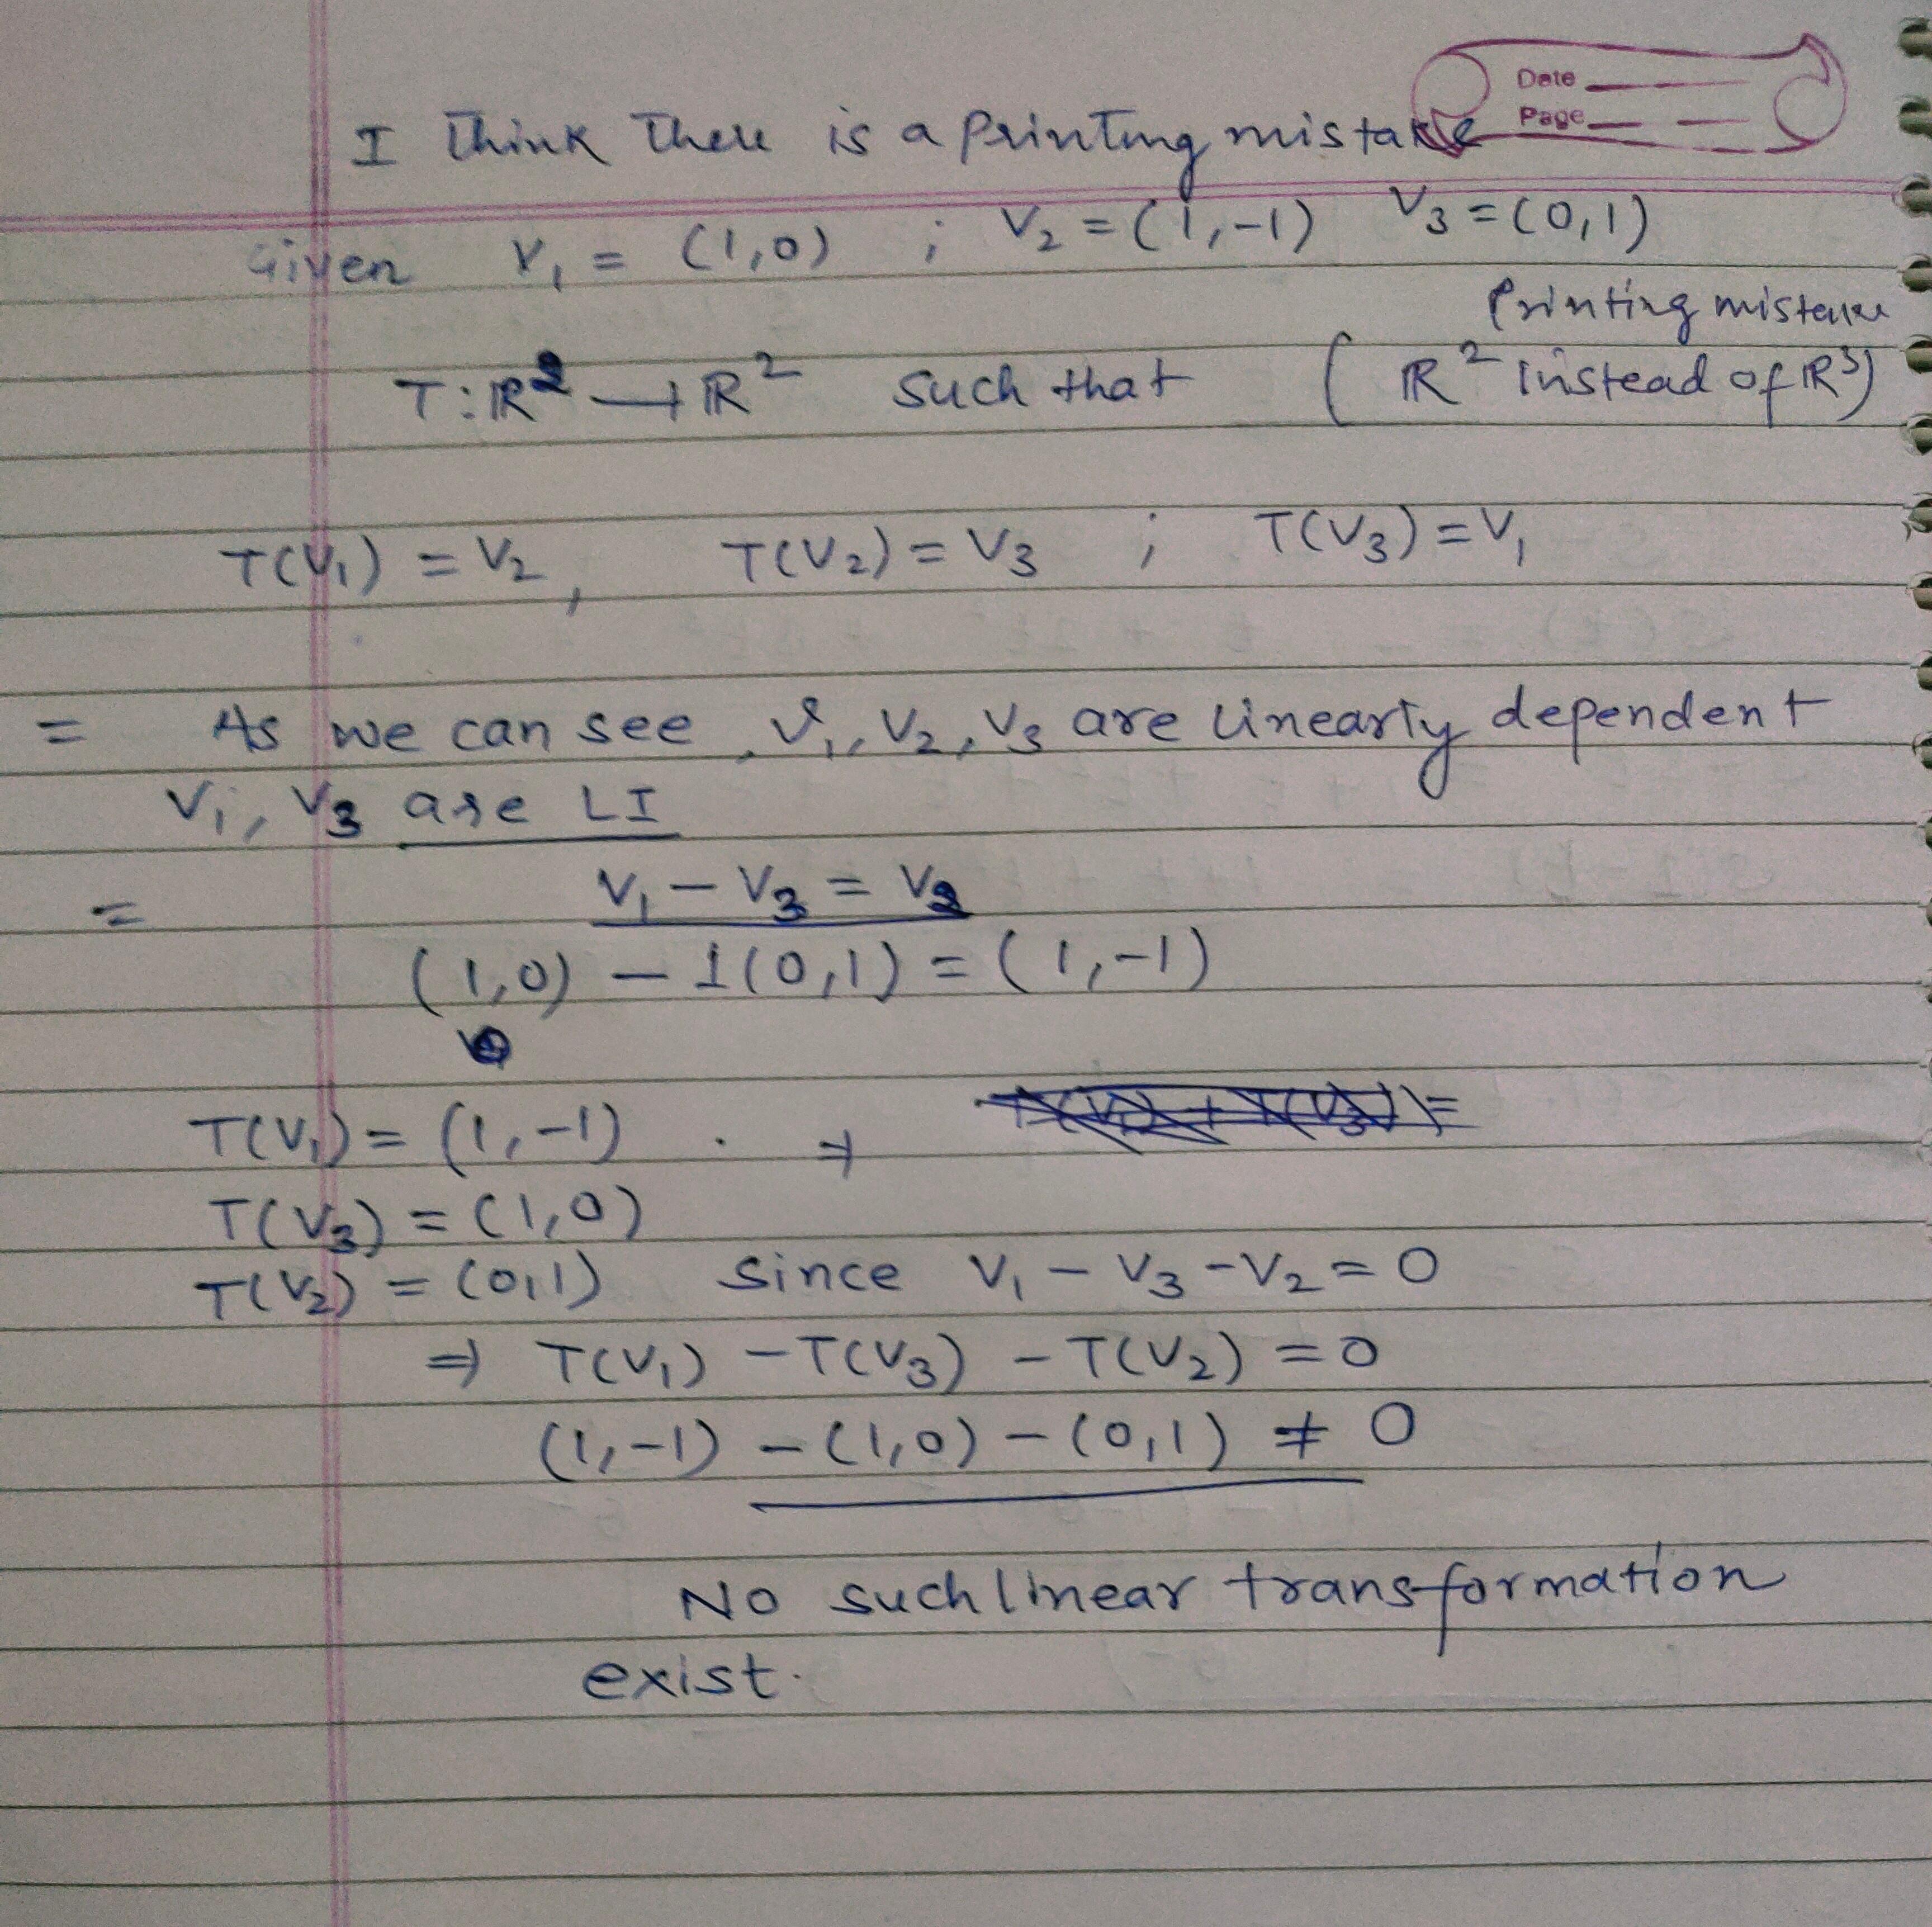 Date
Page
I think there is a Printing mistake
Given V₁ = (1,0) ; V₂ = (1,-1) V₃ = (0,1)
Printing mistake
T: ℝ² → ℝ² such that ( ℝ² instead of ℝ³)
T(V₁) = V₂, T(V₂) = V₃ ; T(V₃) = V₁
= As we can see, V₁, V₂, V₃ are linearly dependent
V₁, V₃ are LI
= V₁ - V₃ = V₂
(1,0) - 1(0,1) = (1,-1)
T(V₁) = (1,-1) . ⇒
T(V₃) = (1,0)
T(V₂) = (0,1) Since V₁ - V₃ - V₂ = 0
⇒ T(V₁) - T(V₃) - T(V₂) = 0
(1,-1) - (1,0) - (0,1) ≠ 0
No such linear transformation
exist.